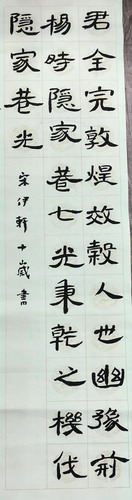 君全完敦煌效榖人世幽豫前
楊時隱家巷七光秉乾之機伐
隱家巷光
宋伊軒十歲書